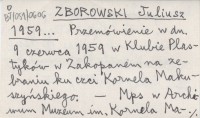 ZBOROWSKI Juliusz
1959... Przemówienie w dn.
9 czerwca 1959 w Klubie Plas-
tyków w Zakopanem na ze-
braniu ku czci Kornela Maku-
szyńskiego. — Mps w Archi-
wum Muzeum im. Kornela Ma-